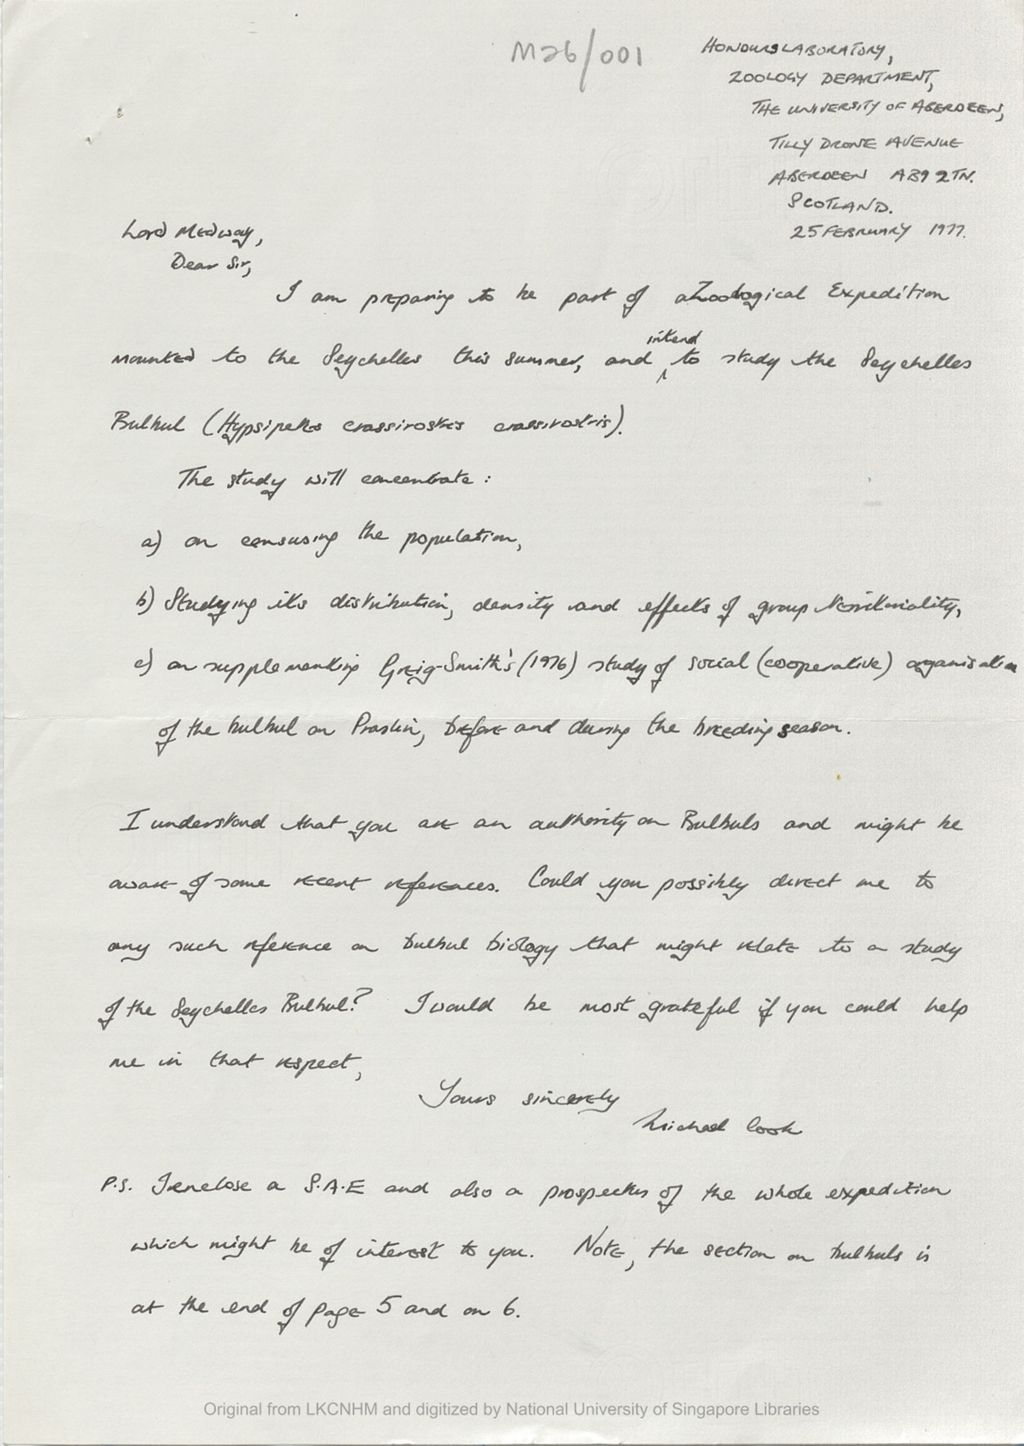 M26/001
HONOURS LABORATORY,
ZOOLOGY DEPARTMENT,
THE UNIVERSITY OF ABERDEEN,
TILLY DRONE AVENUE
ABERDEEN AB9 2TN.
SCOTLAND.
25 FEBRUARY 1977.
Lord Medway,
Dear Sir,
I am preparing to be part of a Zoological Expedition
intend
mounted to the Seychelles this summer, and to study the Seychelles
Bulbul (Hypsipetes crassirostris crassirostris).
The study will concentrate:
a) on censusing the population,
b) Studying its distribution, density and effects of group territoriality,
c) on supplementing Greig-Smith's (1976) study of social (cooperative) organisation
of the bulbul on Praslin, before and during the breeding season.
I understand that you are an authority on Bulbuls and might be
aware of some recent references. Could you possibly direct me to
any such reference on bulbul biology that might relate to a study
of the Seychelles Bulbul? I would be most grateful if you could help
me in that respect,
Yours sincerely
Michael Cook
P.S. I enclose a S.A.E and also a prospectus of the whole expedition
which might be of interest to you. Note, the section on bulbuls is
at the end of page 5 and on 6.
Original from LKCNHM and digitized by National University of Singapore Libraries